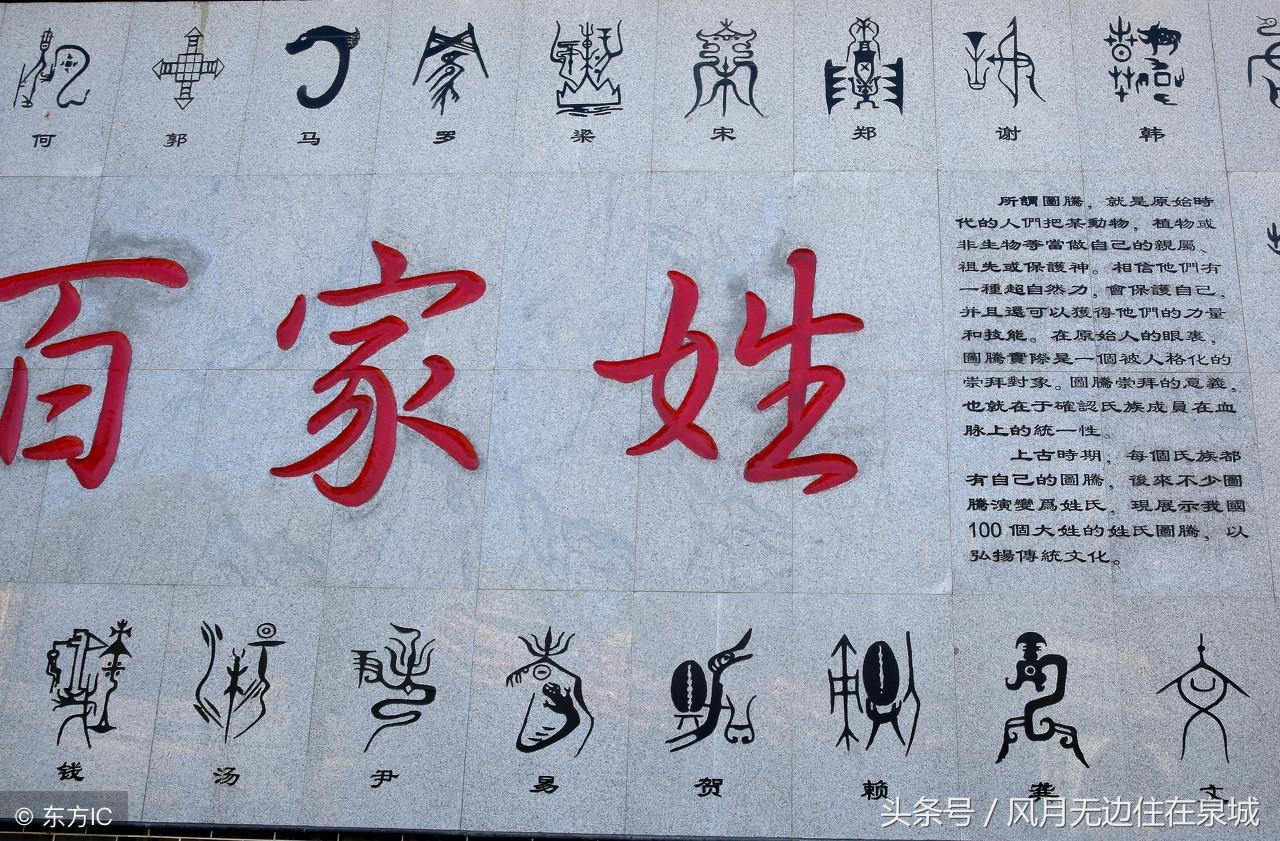 何 郭 马 罗 梁 宋 郑 谢 韩
百家姓
所謂圖騰，就是原始時
代的人們把某動物，植物或
非生物等當做自己的親屬、
祖先或保護神。相信他們有
一種超自然力，會保護自己，
并且還可以獲得他們的力量
和技能。在原始人的眼裏，
圖騰實際是一個被人格化的
崇拜對象。圖騰崇拜的意義，
也就在于確認氏族成員在血
脉上的統一性。
上古時期，每個氏族都
有自己的圖騰，後來不少圖
騰演變爲姓氏，現展示我國
100個大姓的姓氏圖騰，以
弘揚傳統文化。
钱 汤 尹 易 贺 赖 龚 文
© 东方IC
头条号 / 风月无边住在泉城